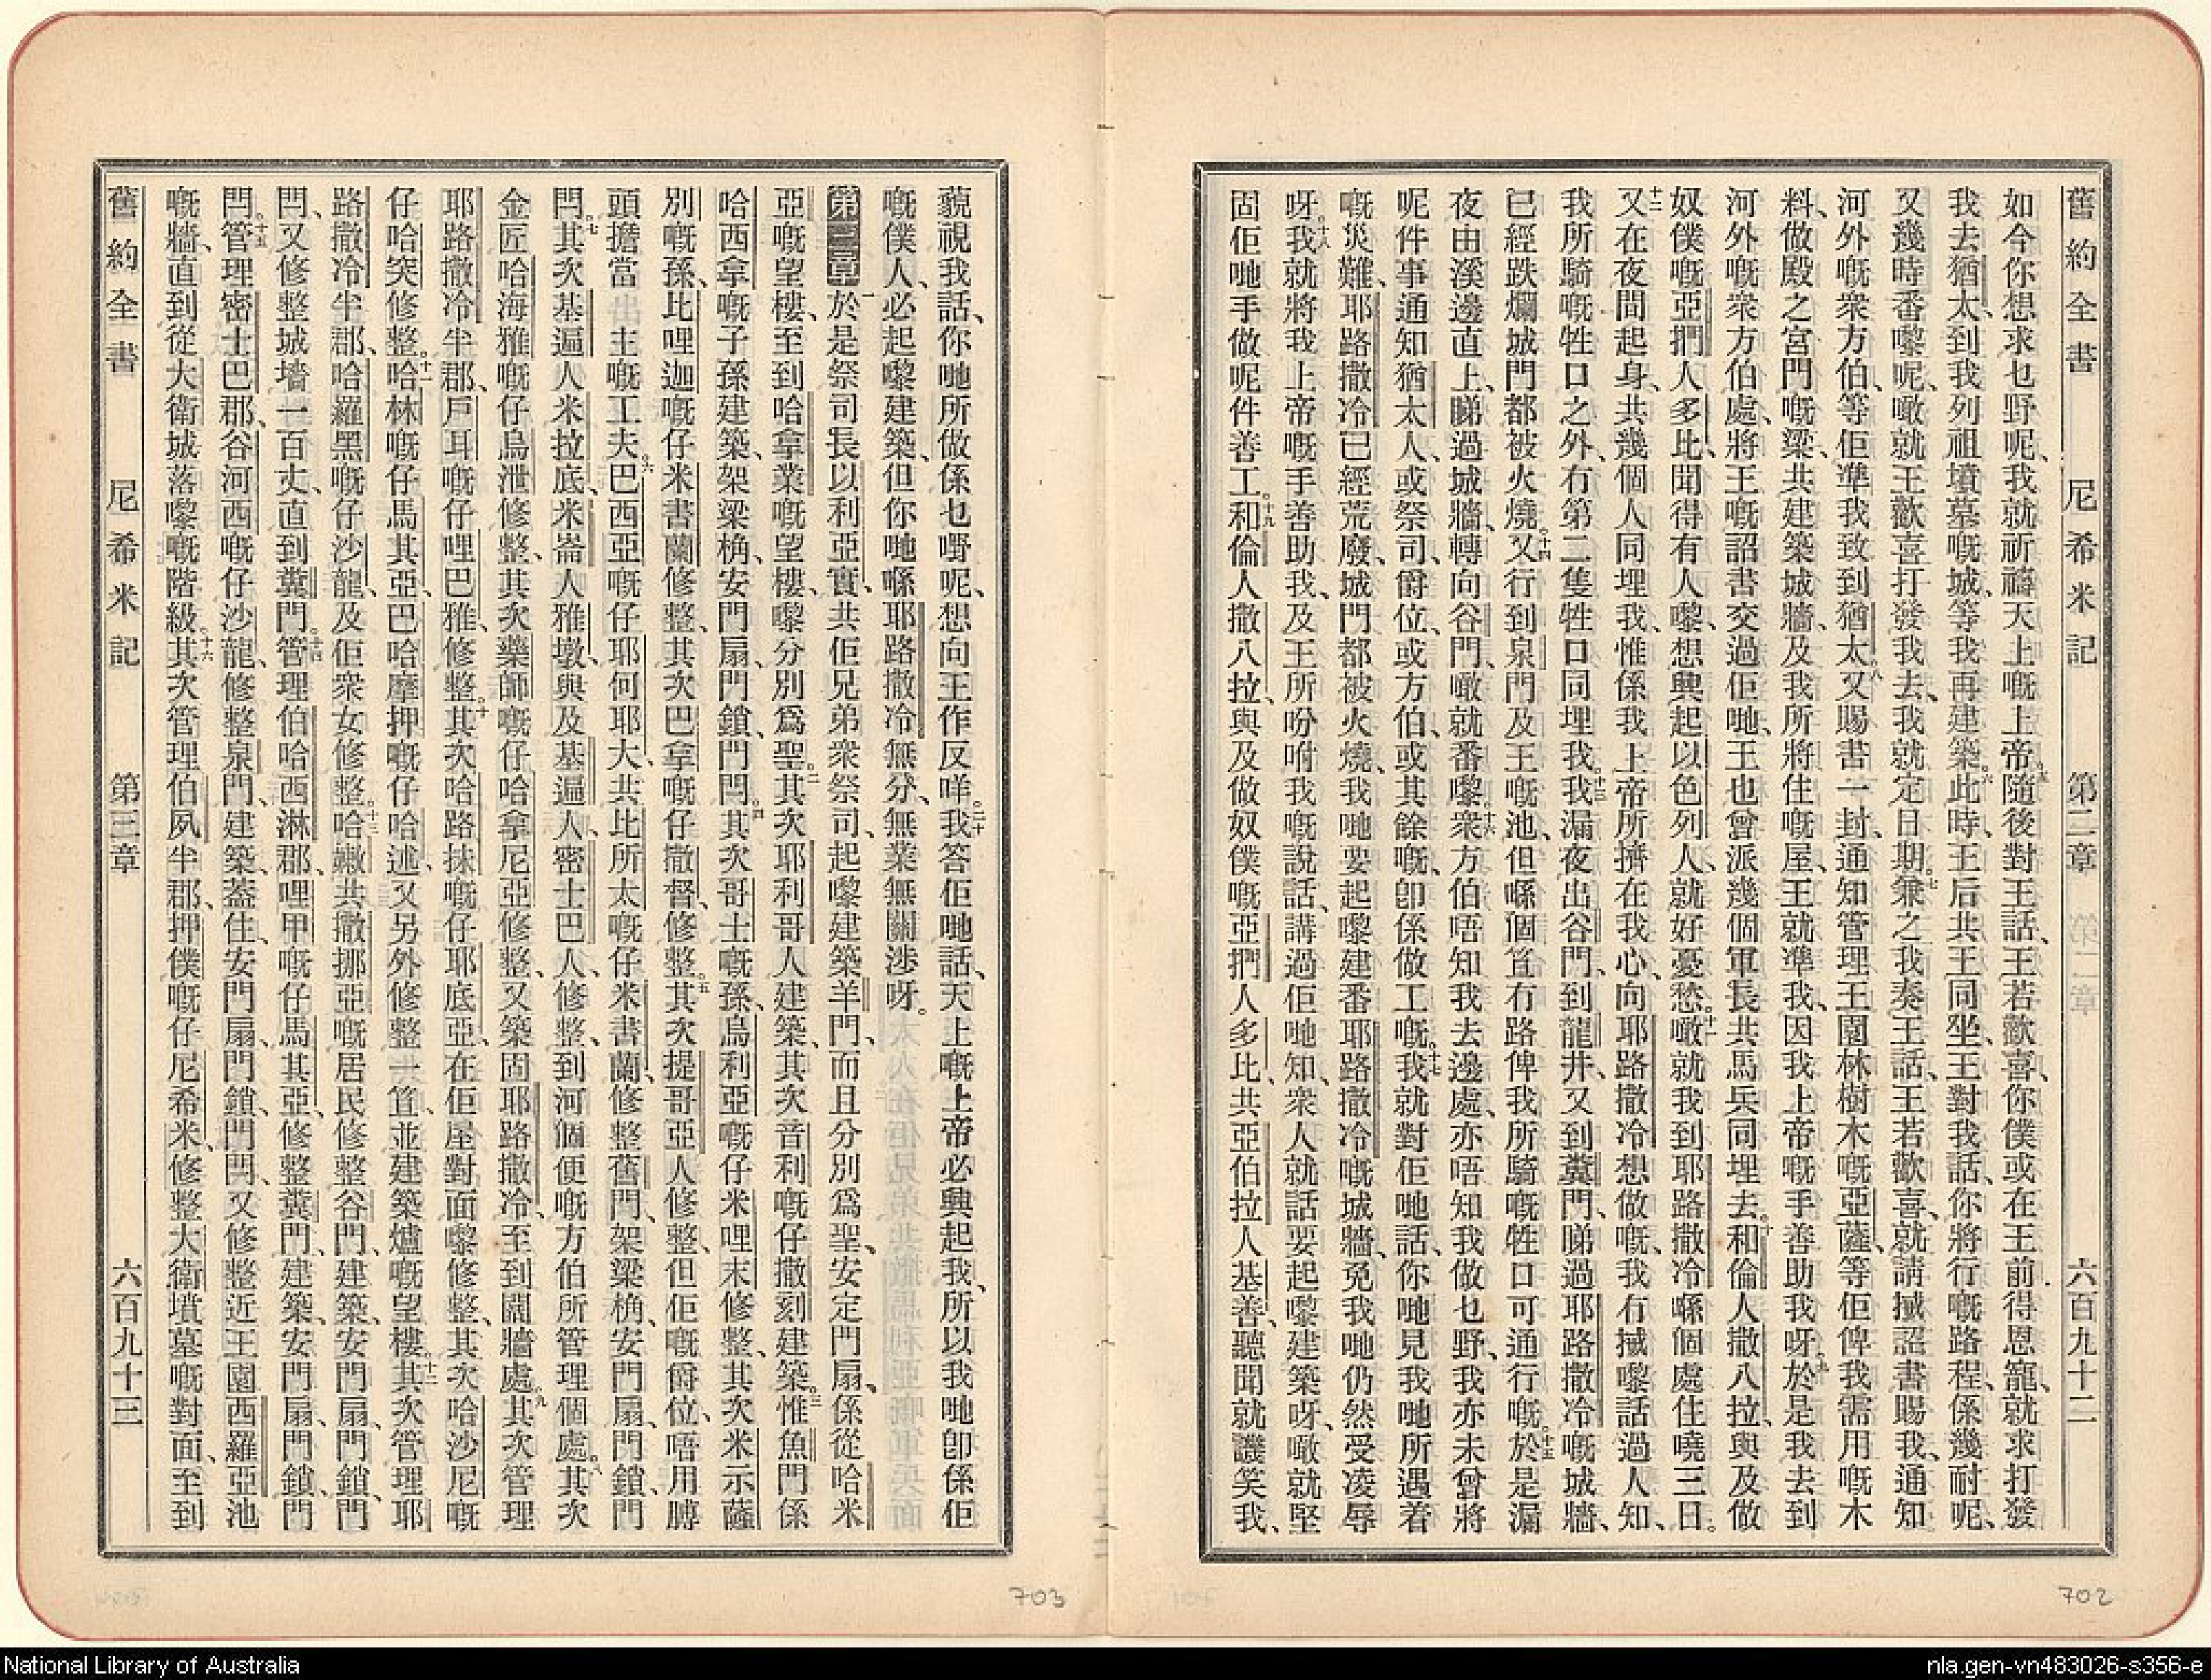 舊約全書 尼希米記 第二章 六百九十二
如今你想求乜野呢、我就祈禱天上嘅上帝。五隨後對王話、王若歡喜、你僕或在王前得恩寵、就求打發
我去猶太、到我列祖墳墓嘅城、等我再建築。六此時、王后共王同坐、王對我話、你將行嘅路程、係幾耐呢、
又幾時番嚟呢、噉就王歡喜打發我去、我就定日期。七兼之我奏王話、王若歡喜、就請搣詔書賜我、通知
河外嘅衆方伯、等佢準我致到猶太。八又賜書一封、通知管理王園林樹木嘅亞薩、等佢俾我需用嘅木
料、做殿之宮門嘅梁、共建築城牆、及我所將住嘅屋、王就準我、因我上帝嘅手善助我呀。九於是我去到
河外嘅衆方伯處、將王嘅詔書交過佢哋、王也曾派幾個軍長共馬兵同埋去。十和倫人撒八拉、與及做
奴僕嘅亞捫人多比、聞得有人嚟、想興起以色列人、就好憂愁。十一噉就我到耶路撒冷、喺個處住嘵三日。
十二又在夜間起身、共幾個人同埋我、惟係我上帝所擠在我心、向耶路撒冷想做嘅、我冇搣嚟話過人知、
我所騎嘅牲口之外、冇第二隻牲口同埋我。十三我漏夜出谷門、到龍井、又到糞門、睇過耶路撒冷嘅城牆、
已經跌爛、城門都被火燒。十四又行到泉門、及王嘅池、但喺個笪冇路俾我所騎嘅牲口可通行嘅。十五於是漏
夜由溪邊直上、睇過城牆、轉向谷門、噉就番嚟。十六衆方伯唔知我去邊處、亦唔知我做乜野、我亦未曾將
呢件事通知猶太人、或祭司、爵位、或方伯、或其餘嘅、卽係做工嘅。十七我就對佢哋話、你哋見我哋所遇着
嘅災難、耶路撒冷已經荒廢、城門都被火燒、我哋要起嚟建番耶路撒冷嘅城牆、免我哋仍然受凌辱
呀。十八我就將我上帝嘅手善助我、及王所吩咐我嘅說話、講過佢哋知、衆人就話、要起嚟建築呀、噉就堅
固佢哋手做呢件善工。十九和倫人撒八拉、與及做奴僕嘅亞捫人多比、共亞伯拉人基善、聽聞就譏笑我、
藐視我話、你哋所做係乜嘢呢、想向王作反咩。二十我答佢哋話、天上嘅上帝必興起我、所以我哋卽係佢
嘅僕人、必起嚟建築、但你哋喺耶路撒冷無分、無業、無關涉呀。
第三章 一於是祭司長以利亞實、共佢兄弟衆祭司、起嚟建築羊門、而且分別爲聖、安定門扇、係從哈米
亞嘅望樓、至到哈拿業嘅望樓、嚟分別爲聖。二其次耶利哥人建築、其次音利嘅仔撒刻建築。三惟魚門係
哈西拿嘅子孫建築、架梁桷、安門扇、門鎖、門閂。四其次哥士嘅孫、烏利亞嘅仔米哩末修整、其次米示薩
別嘅孫、比哩迦嘅仔米書蘭修整、其次巴拿嘅仔撒督、修整。五其次提哥亞人修整、但佢嘅爵位、唔用膊
頭擔當 主嘅工夫。六巴西亞嘅仔耶何耶大、共比所太嘅仔米書蘭、修整舊門、架梁桷、安門扇、門鎖、門
閂。七其次基遍人米拉底、米崙人雅墩、與及基遍人、密士巴人、修整、到河個便嘅方伯所管理個處。八其次
金匠哈海雅嘅仔烏泄修整、其次藥師嘅仔哈拿尼亞修整、又築固耶路撒冷、至到闊牆處。九其次管理
耶路撒冷半郡、戶耳嘅仔哩巴雅、修整。十其次哈路抹嘅仔耶底亞、在佢屋對面嚟修整、其次哈沙尼嘅
仔哈突修整。十一哈林嘅仔馬其亞、巴哈摩押嘅仔哈述、又另外修整一笪、並建築爐嘅望樓。十二其次管理耶
路撒冷半郡、哈羅黑嘅仔沙龍、及佢衆女修整。十三哈嫩共撒挪亞嘅居民修整谷門、建築、安門扇、門鎖、門
閂、又修整城墻一百丈、直到糞門。十四管理伯哈西淋郡、哩甲嘅仔馬其亞、修整糞門、建築、安門扇、門鎖、門
閂。十五管理密士巴郡、谷河西嘅仔沙龍、修整泉門、建築、葢住、安門扇、門鎖、門閂、又修整近王園西羅亞池
嘅牆、直到從大衛城落嚟嘅階級。十六其次管理伯夙半郡、押僕嘅仔尼希米、修整大衛墳墓嘅對面、至到
舊約全書 尼希米記 第三章 六百九十三
702
703
National Library of Australia
nla.gen-vn483026-s356-e